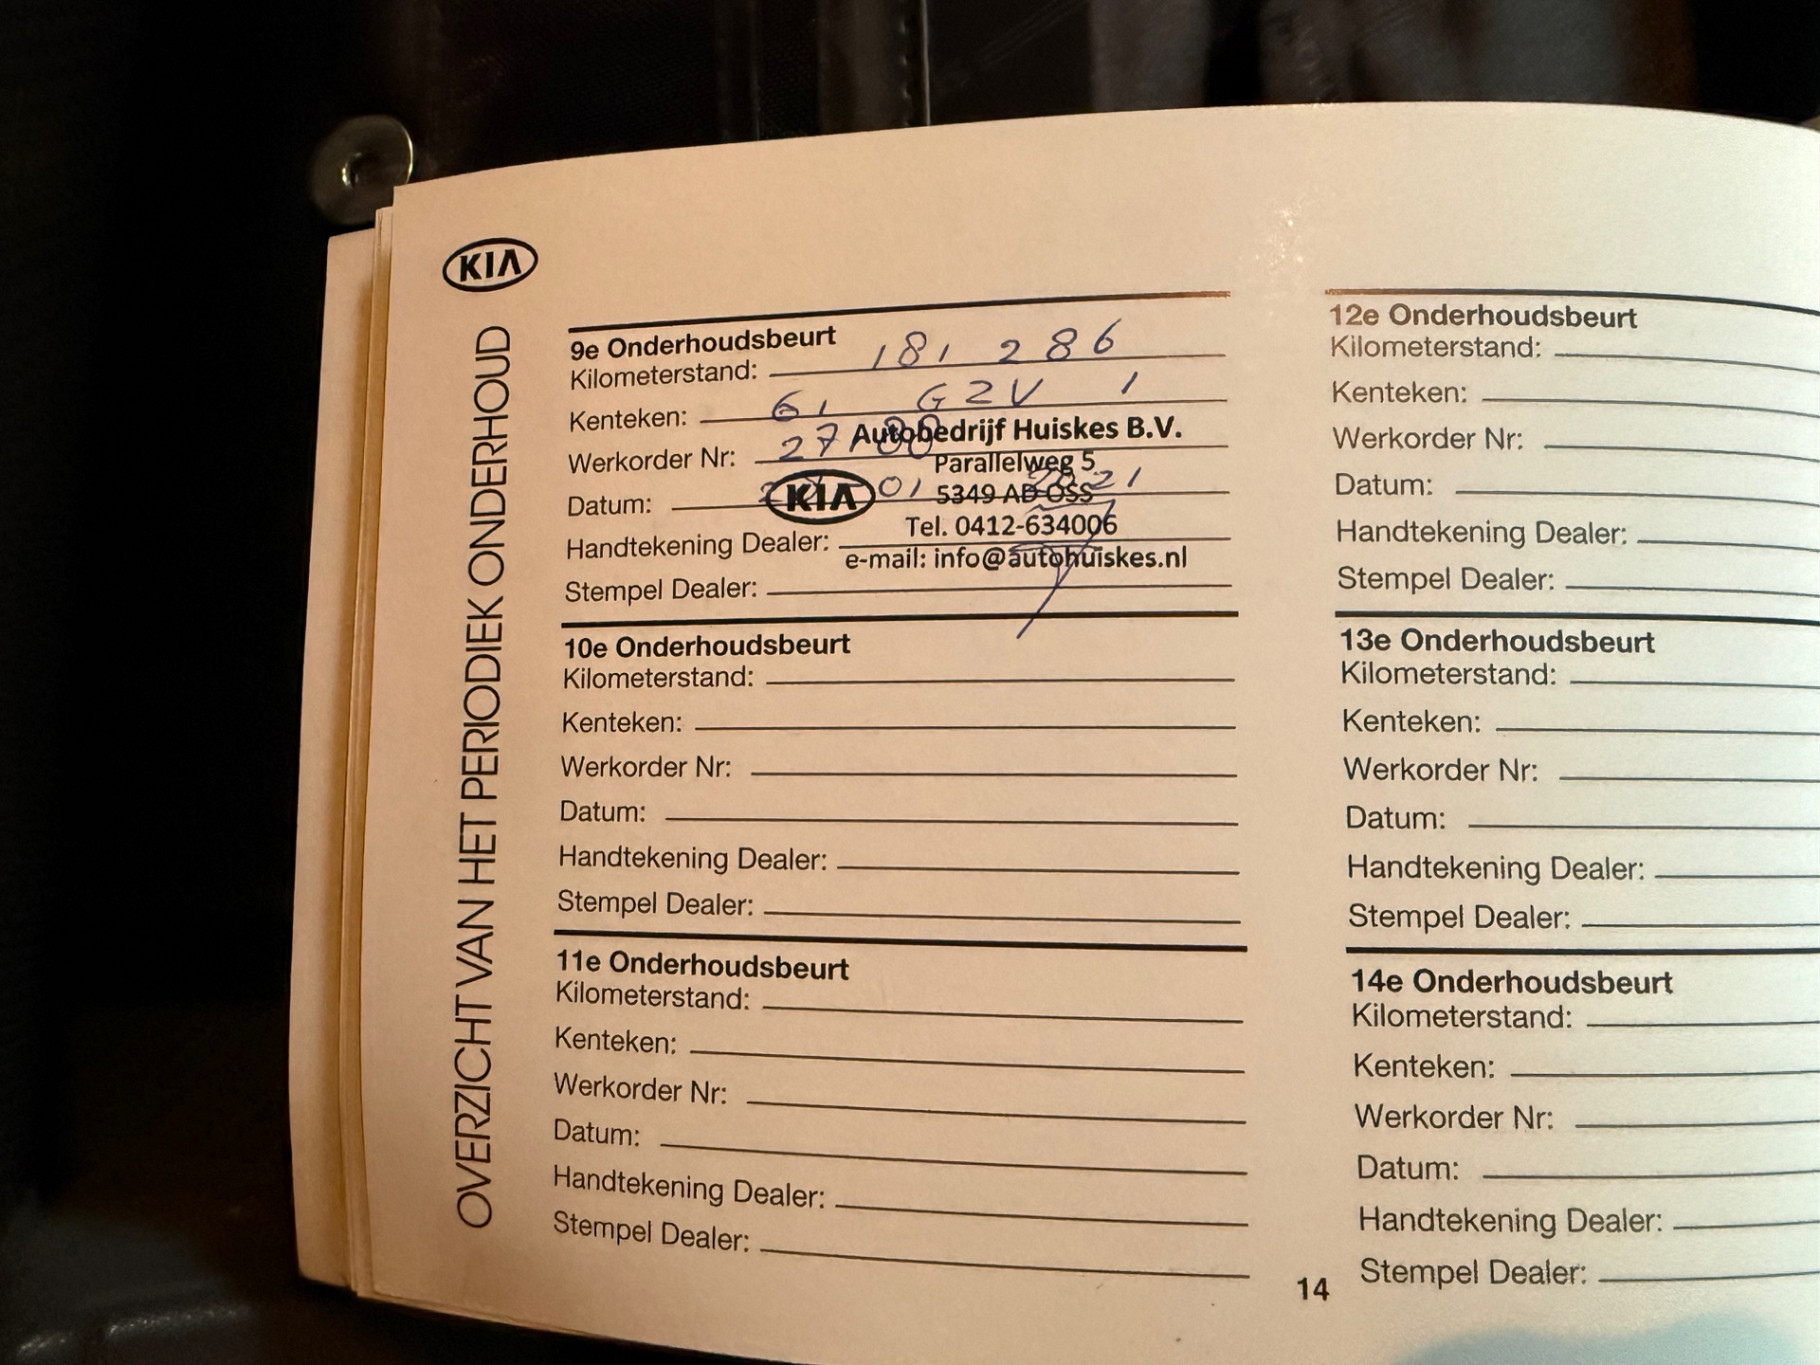 KIA
OVERZICHT VAN HET PERIODIEK ONDERHOUD
9e Onderhoudsbeurt
Kilometerstand: 181 286
Kenteken: 61 GZV 1
Werkorder Nr: 27
Datum: 01 2021
Handtekening Dealer:
Stempel Dealer:
Autobedrijf Huiskes B.V.
Parallelweg 5
5349 AD OSS
KIA
Tel. 0412-634006
e-mail: info@autohuiskes.nl
10e Onderhoudsbeurt
Kilometerstand:
Kenteken:
Werkorder Nr:
Datum:
Handtekening Dealer:
Stempel Dealer:
11e Onderhoudsbeurt
Kilometerstand:
Kenteken:
Werkorder Nr:
Datum:
Handtekening Dealer:
Stempel Dealer:
12e Onderhoudsbeurt
Kilometerstand:
Kenteken:
Werkorder Nr:
Datum:
Handtekening Dealer:
Stempel Dealer:
13e Onderhoudsbeurt
Kilometerstand:
Kenteken:
Werkorder Nr:
Datum:
Handtekening Dealer:
Stempel Dealer:
14e Onderhoudsbeurt
Kilometerstand:
Kenteken:
Werkorder Nr:
Datum:
Handtekening Dealer:
Stempel Dealer:
14